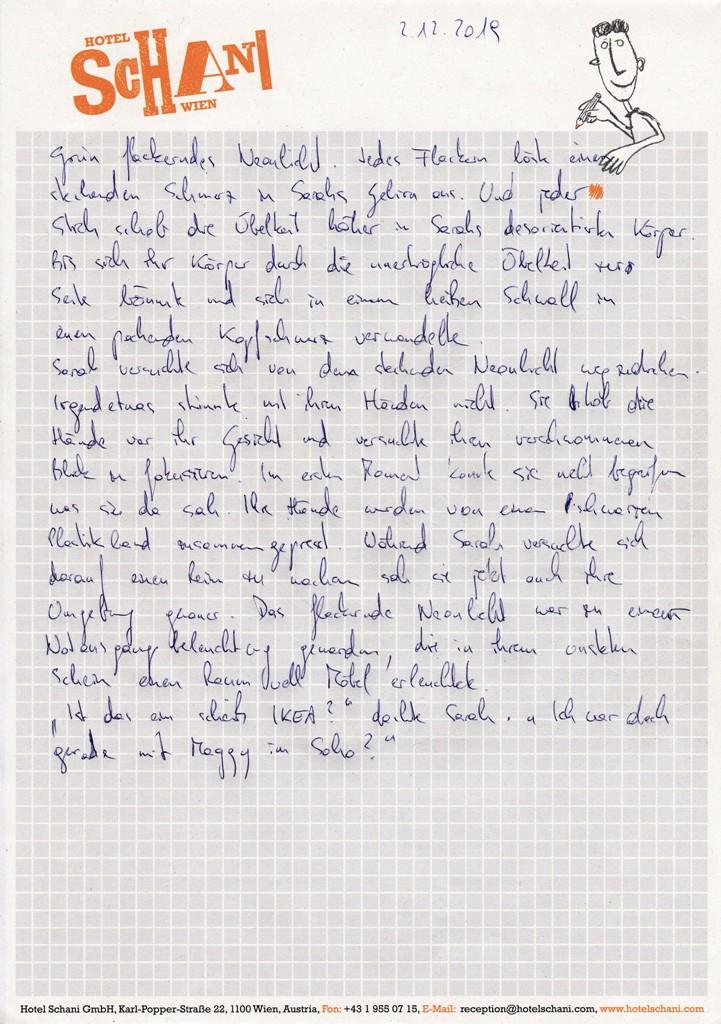 HOTEL
SCHANI
WIEN
2.12.2019
Grün flackerndes Neonlicht. Jedes Flackern löste einen
stechenden Schmerz in Sarahs Gehirn aus. Und jeder
Stich schob die Übelkeit höher in Sarahs desorientierten Körper.
Bis sich ihr Körper durch die unerträgliche Übelkeit zur
Seite krümmte und sich in einem heißen Schwall in
einen pochenden Kopfschmerz verwandelte.
Sarah versuchte sich von dem stechenden Neonlicht wegzudrehen.
Irgendetwas stimmte mit ihren Händen nicht. Sie hob die
Hände vor ihr Gesicht und versuchte ihren verschwommenen
Blick zu fokussieren. Im ersten Moment konnte sie nicht begreifen
was sie da sah. Ihre Hände wurden von einem schwarzen
Plastikband zusammengepresst. Während Sarah versuchte sich
darauf einen Reim zu machen sah sie jetzt auch ihre
Umgebung genauer. Das flackernde Neonlicht war zu einer
Notausgangbeleuchtung geworden, die in ihrem unsteten
Schein einen Raum voll Möbel erleuchtete.
„Ist das ein scheiß IKEA?“ dachte Sarah. „Ich war doch
gerade mit Maggy im Soho?“
Hotel Schani GmbH, Karl-Popper-Straße 22, 1100 Wien, Austria, Fon: +43 1 955 07 15, E-Mail: reception@hotelschani.com, www.hotelschani.com